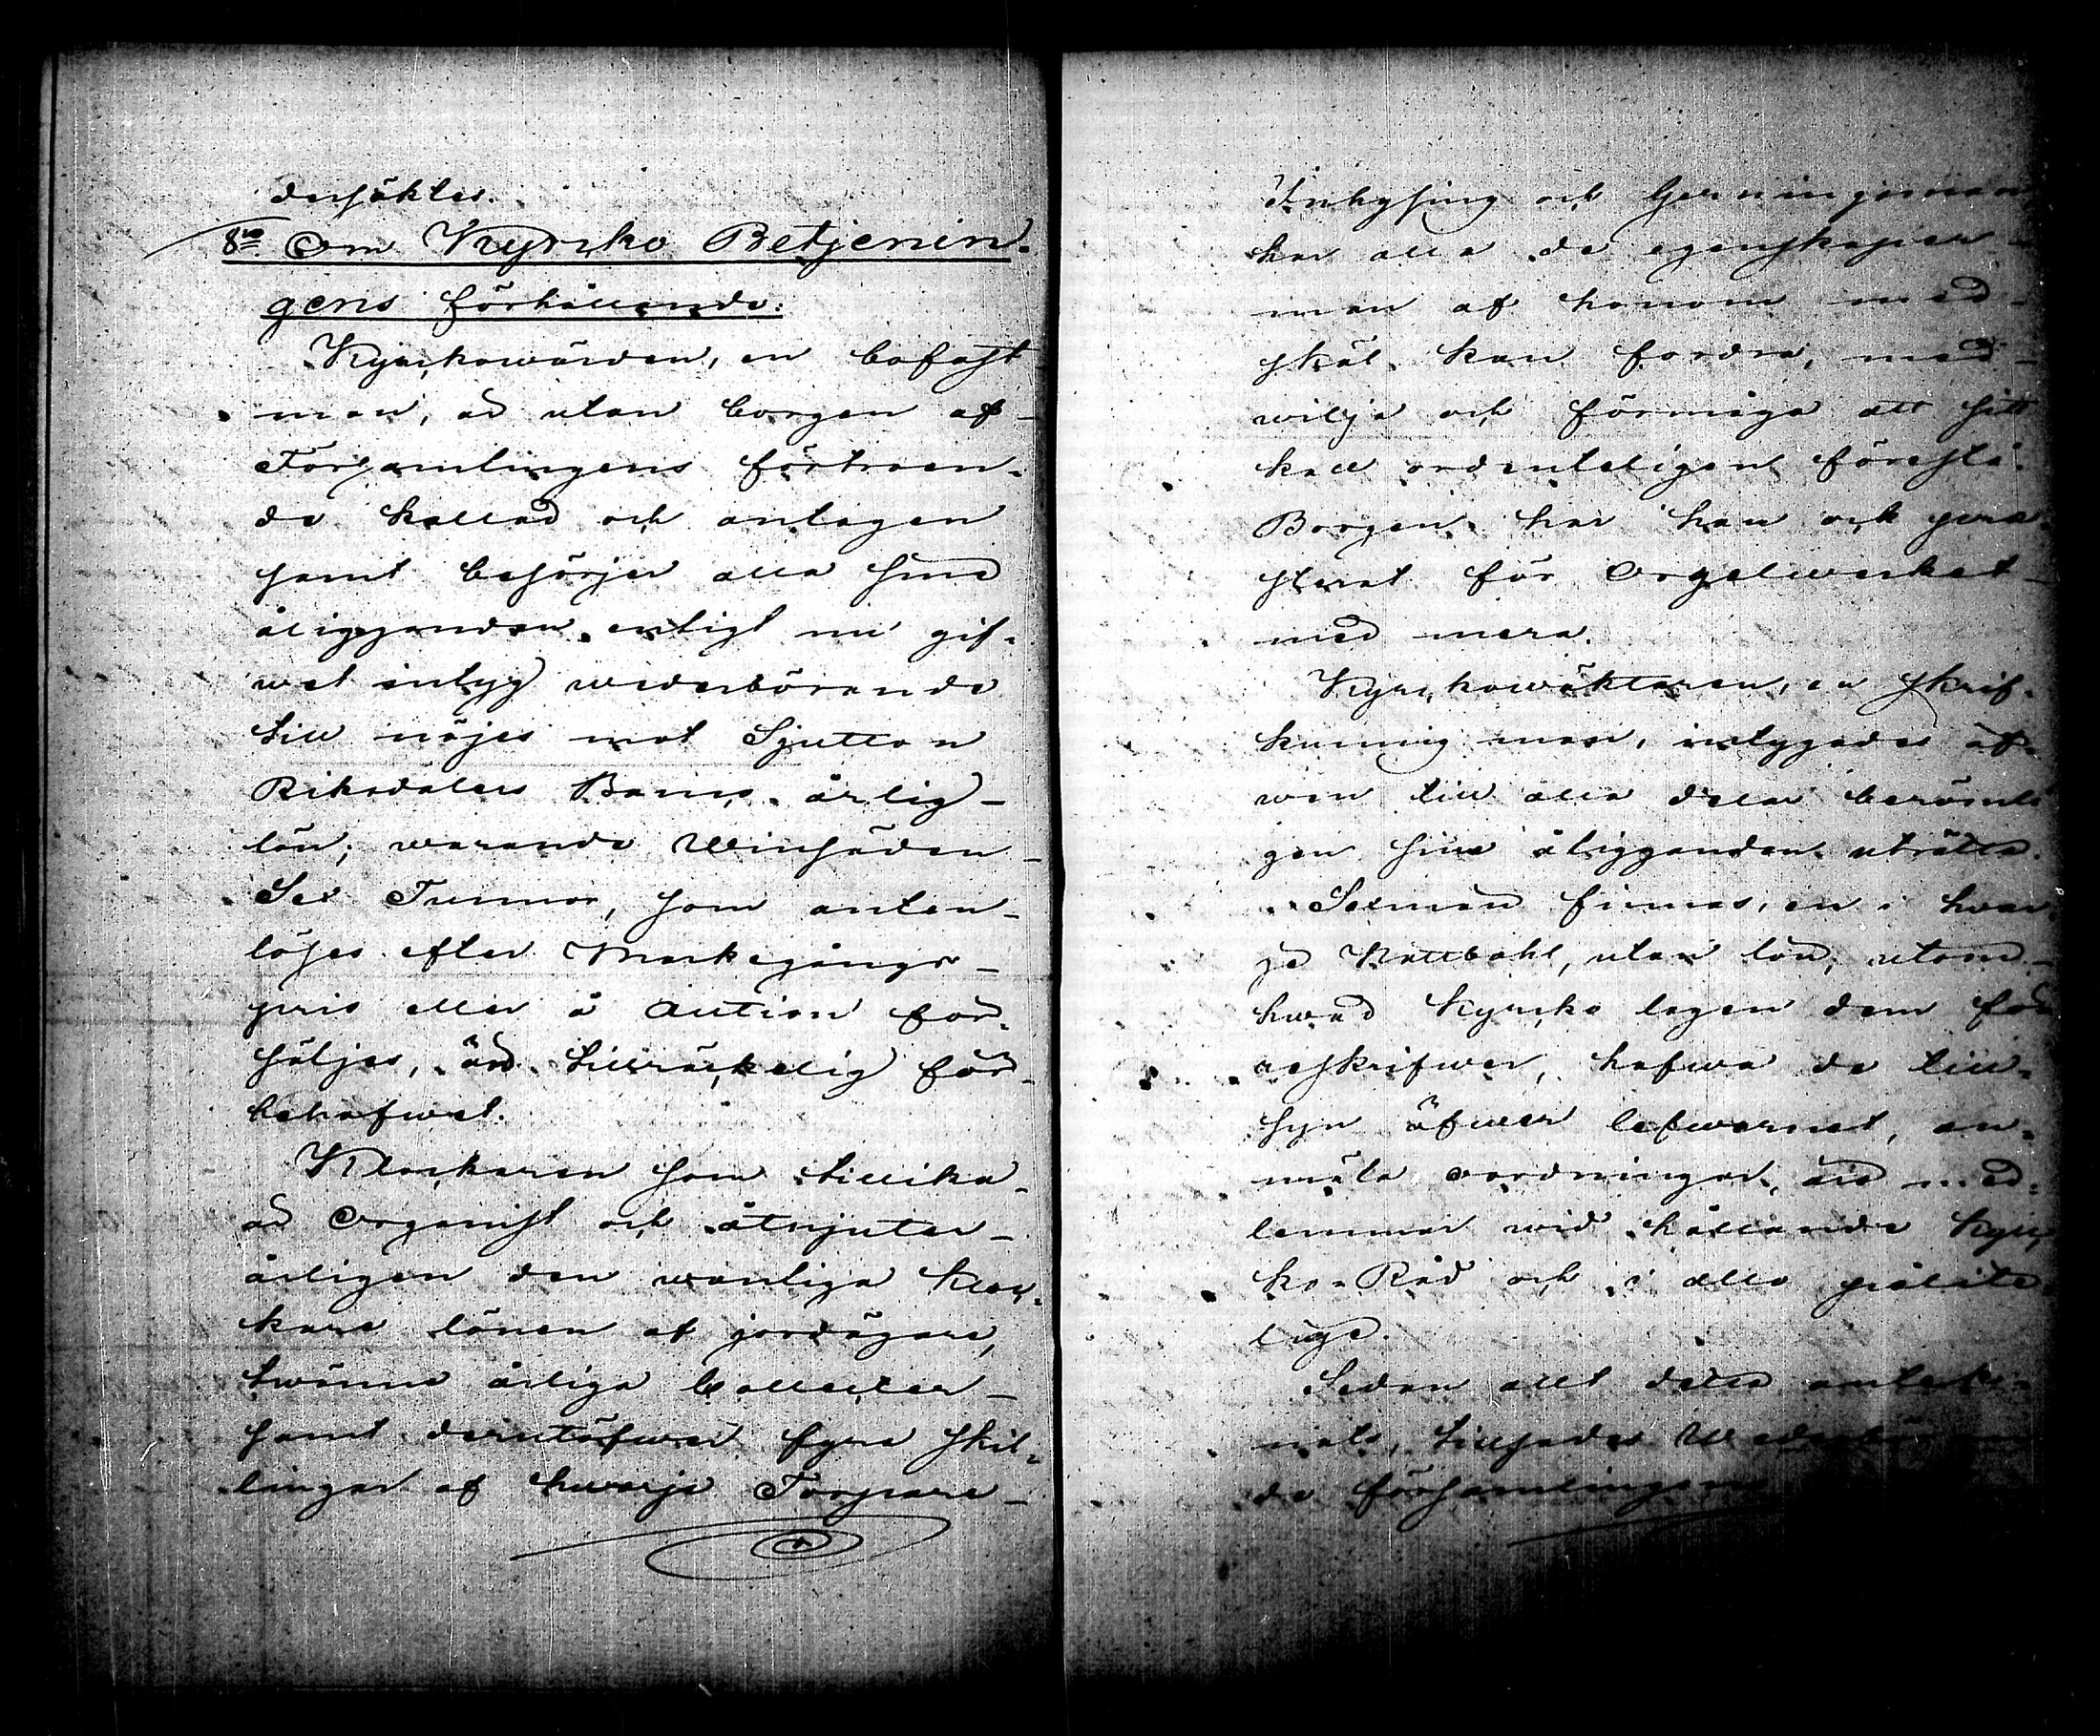 dersöktes.
8:o Om Kyrcko Betjenin-
gens förhållande:
Kyrckowärden, en bofast
man, är utan borgen af
Församlingens förtroen-
de kallad och antagen
samt besörjer alla sina
åligganden enligt nu gif-
wet intyg wederbörande
till nöjes mot Sjutton
Riksdaler Banco årlig
lön; warande Winsäden
Sex Tunnor, som anten
löses efter Markegångs-
pris eller å Auction för-
säljes, är tillräckelig för
behofwet.
Klockaren som tillika
är Organist och åtnjuter
årligen den wanliga kloc-
kare lönen af jordägare,
twänne årliga Collecter
samt derutöfwer fyra skil-
lingar af hwarje Torpare
Inhysing och Gerningsman
har alla de egenskaper
man af honom med
skäl kan fordra, med
wilja och förmåga att sitt
kall ordenteligen förestå.
Borgen har han och pre-
sterat för Orgelwerket
med mera.
Kyrckowäktaren, en skrif-
kunnig man, intygades äf-
wen till alla delar berömli
gen sina åligganden uträtta.
Sexmän finnas, en i hwar-
je Rättbohl, utan lön; utom
hwad Kyrcko lagen dem fö
reskrifwer, hafwa de till-
syn öfwer lefwernet, an-
mäla oordningar, äro med-
lemmar wid hållande Kyrc
ko-Råd och i allo pålite-
lige.
Sedan allt detta anteck-
nats, tillsades Wederböran
de församlingens